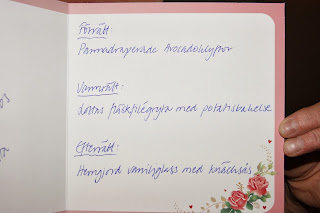 Förrätt:
Parmadraperade Avocadoklyftor
Varmrätt:
Lottas fläskfilégryta med potatisbakelse
Efterrätt:
Hemgjord vaniljglass med knäcksås